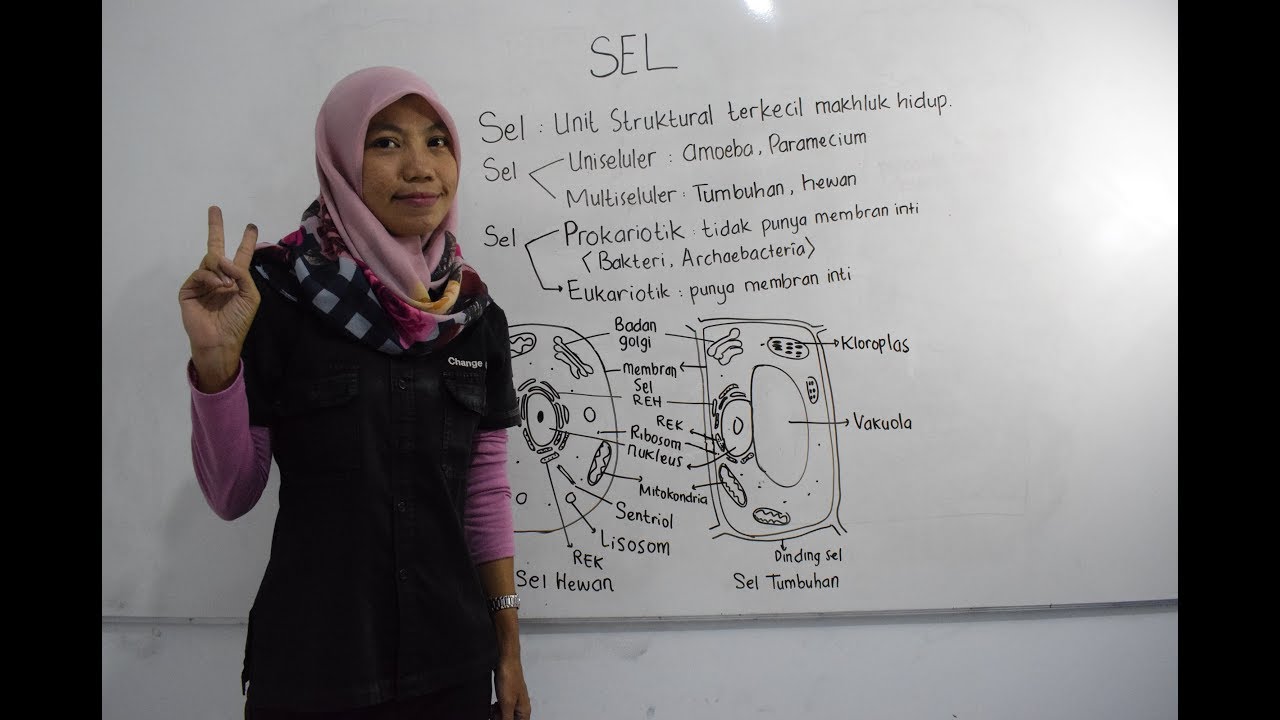 SEL
Sel : Unit Struktural terkecil makhluk hidup.
Sel
Uniseluler : amoeba, Paramecium
Multiseluler : Tumbuhan, hewan
Sel
Prokariotik : tidak punya membran inti
(Bakteri, Archaebacteria)
Eukariotik : punya membran inti
Change
Badan
golgi
membran
Sel
REH
REK
Ribosom
nukleus
Mitokondria
Sentriol
Lisosom
REK
Sel Hewan
Kloroplas
Vakuola
Dinding sel
Sel Tumbuhan